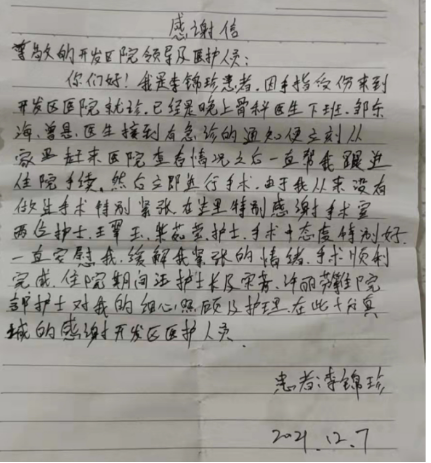 感谢信
尊敬的开发区医院领导及医护人员:
你们好!我是李锦珍患者,因手指受伤来到
开发区医院就诊,已经是晚上骨科医生下班,邹东
海、曾 医生接到有急诊的通知便立刻从
家里赶来医院查看情况之后一直帮我跟进
住院手续,然后立即进行手术,由于我从来没有
做过手术特别紧张,在这里特别感谢手术室
两位护士,王翠玉、朱 护士,手术中态度特别好
一直安慰我,缓解我紧张的情绪,手术顺利
完成,住院期间 护士长及 、许丽 住院
部护士对我的细心照顾及护理,在此十分真
诚的感谢开发区医护人员
患者:李锦珍
2021.12.7